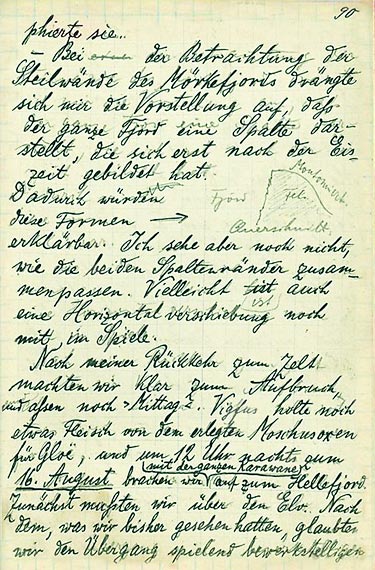 90
phierte sie..
— Bei eine der Betrachtung der
Steilwände des Mörkefjords drängte
sich mir die Vorstellung auf, daß
der ganze Fjord eine Spalte dar-
stellt, die sich erst nach der Eis-
zeit gebildet hat.
Dadurch würden
diese Formen →
Fjord
Fels
Querschnitt.
erklärbar. Ich sehe aber noch nicht,
wie die beiden Spaltenränder zusam-
menpassen. Vielleicht ist auch
eine Horizontalverschiebung noch
mit im Spiele.
Nach meiner Rückkehr zum Zelt
machten wir klar zum Aufbruch,
und assen noch "Mittag". Vigfus holte noch
etwas Fleisch von dem erlegten Moschusoxen
für Gloë, und um 12 Uhr nachts zum
16. August brachen wir (mit der ganzen Karawane) auf zum Hellefjord.
Zunächst mußten wir über den Elv. Nach
dem, was wir bisher gesehen hatten, glaubten
wir den Übergang spielend bewerkstelligen